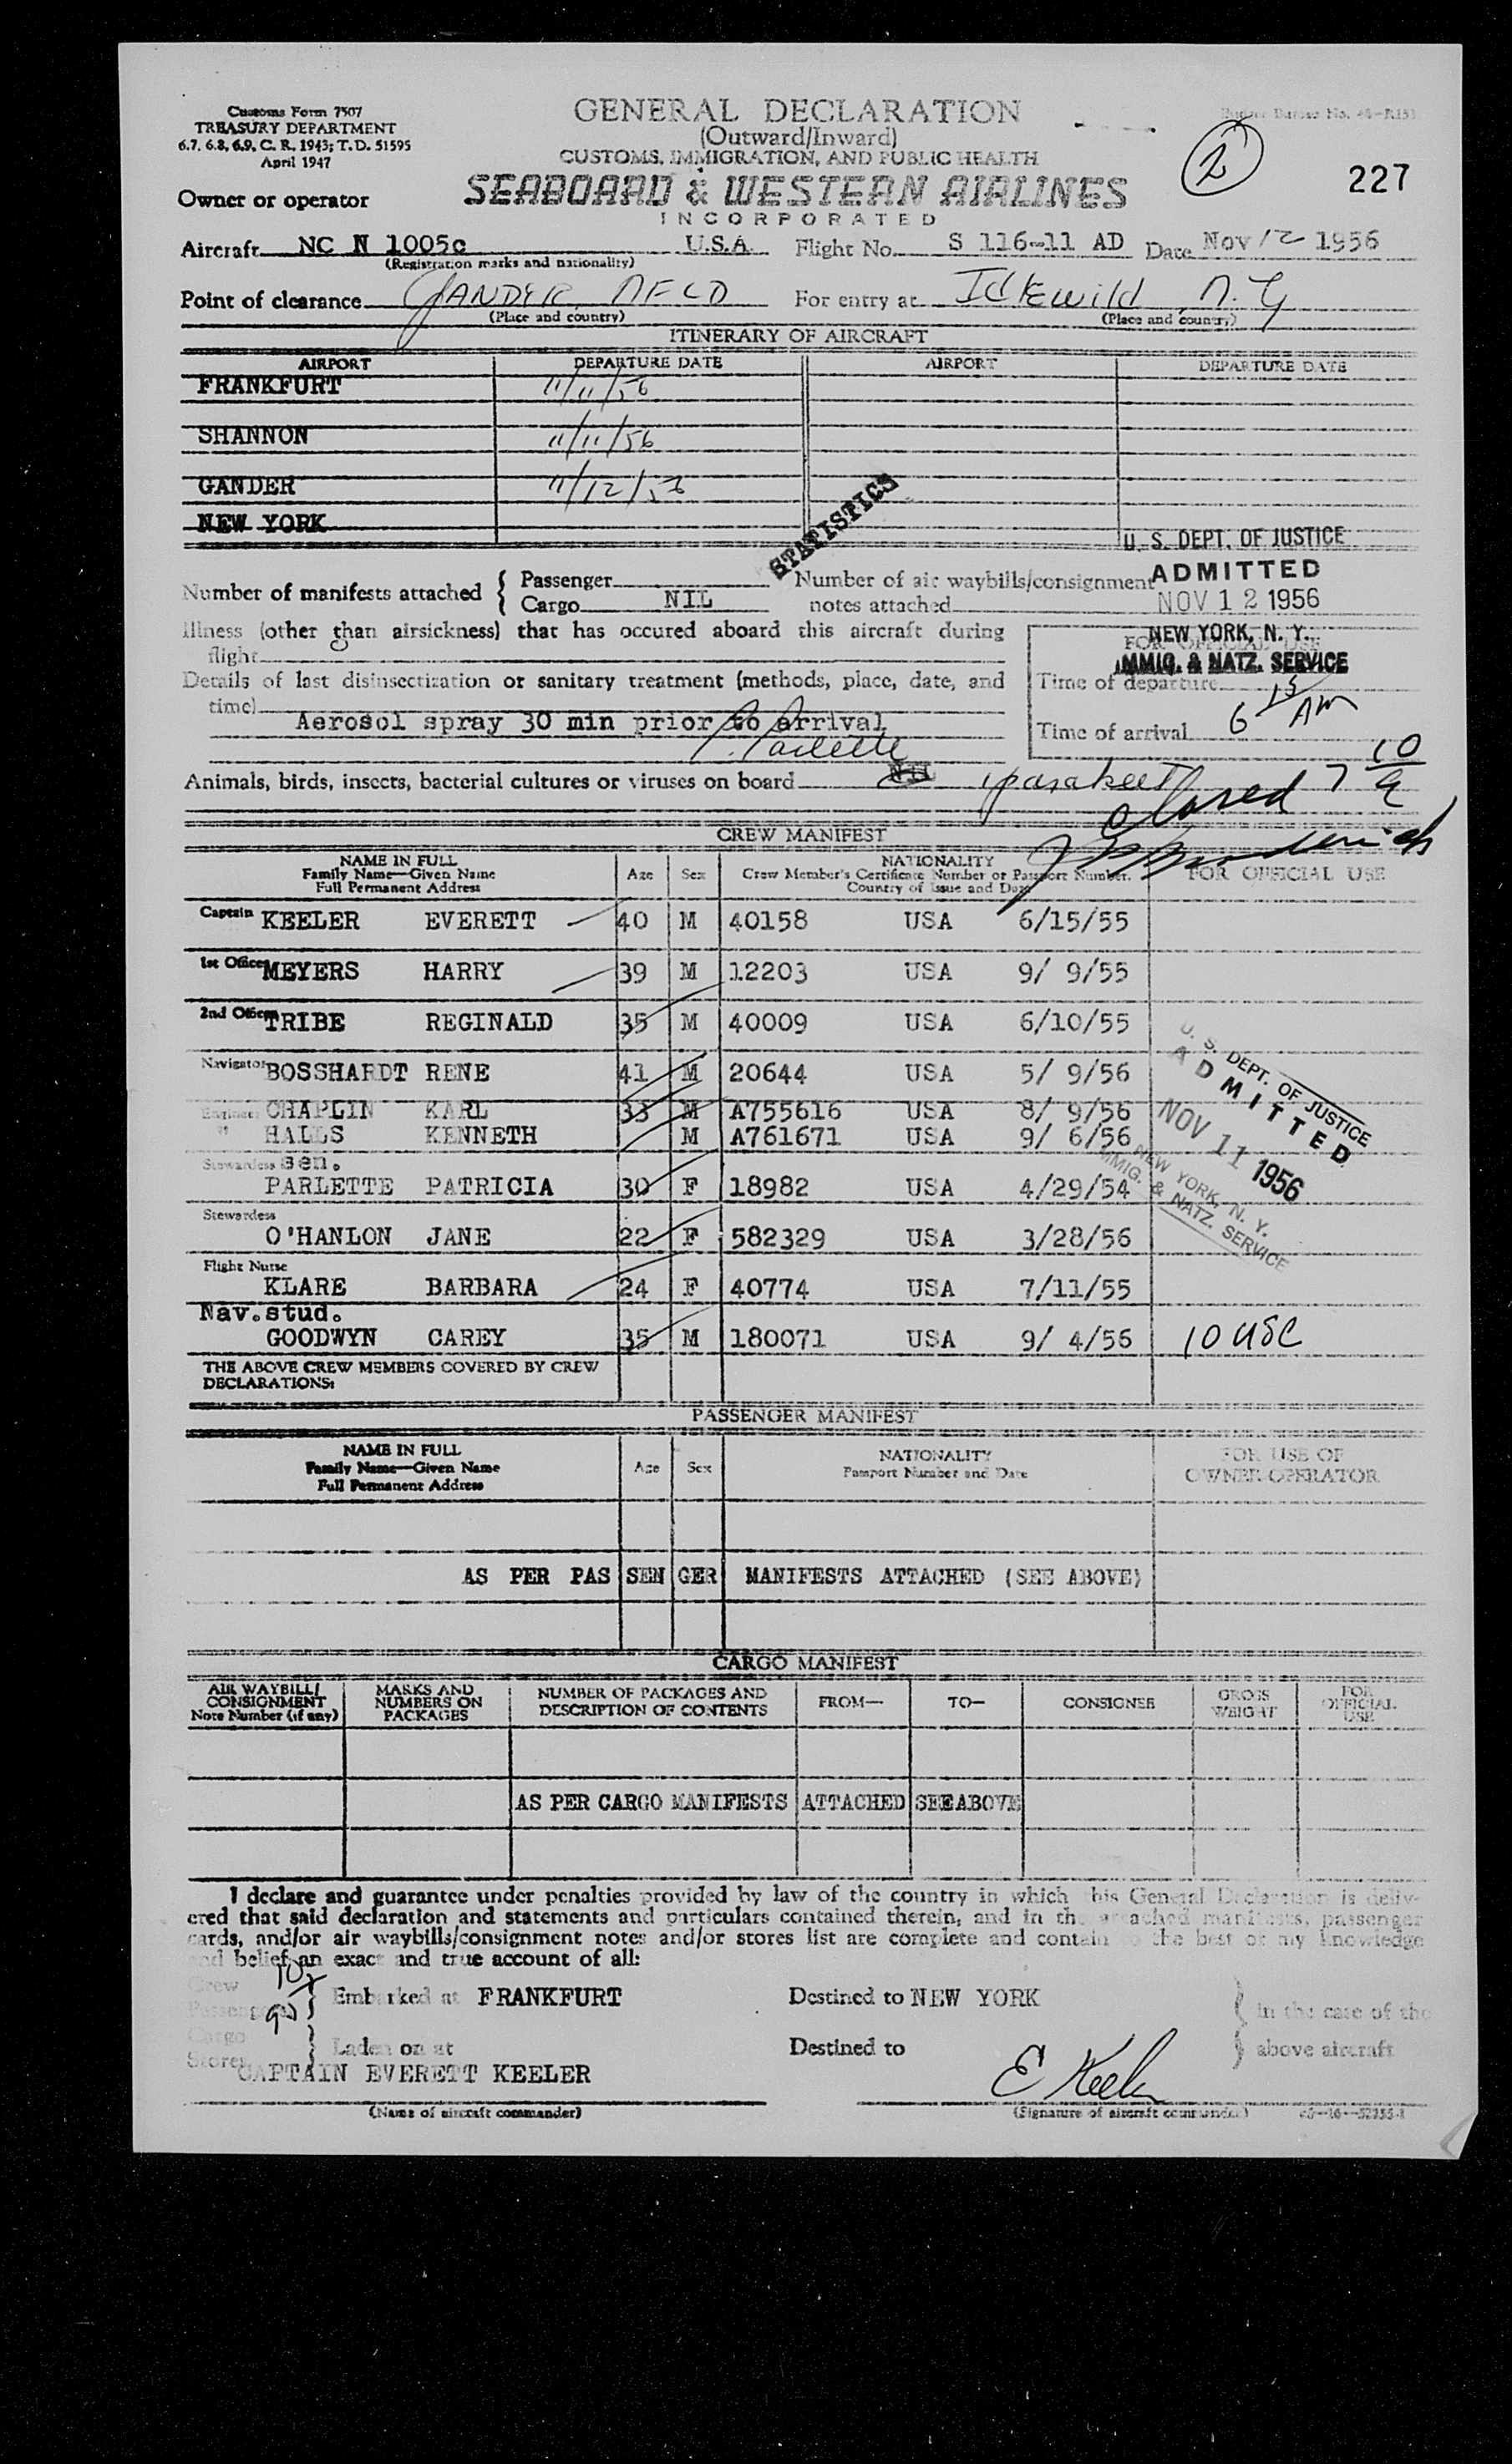 Customs Form 7507
TREASURY DEPARTMENT
6.7, 6.8, 6.9, C. R. 1943; T. D. 51595
April 1947
GENERAL DECLARATION
(Outward/Inward)
CUSTOMS, IMMIGRATION, AND PUBLIC HEALTH
2
227
Owner or operator
SEABOARD & WESTERN AIRLINES
INCORPORATED
Aircraft NC N 1005c U.S.A. Flight No. S 116-11 AD Date Nov 12 1956
(Registration marks and nationality)
Point of clearance GANDER, NFLD For entry at Idlewild N.Y
(Place and country) (Place and country)
ITINERARY OF AIRCRAFT
AIRPORT DEPARTURE DATE AIRPORT DEPARTURE DATE
FRANKFURT 11/11/56
SHANNON 11/11/56
GANDER 11/12/56
NEW YORK
STATISTICS
U. S. DEPT. OF JUSTICE
ADMITTED
NOV 12 1956
NEW YORK, N. Y.
IMMIG. & NATZ. SERVICE
Number of manifests attached { Passenger
Cargo NIL
Number of air waybills/consignment
notes attached
Illness (other than airsickness) that has occured aboard this aircraft during
flight
FOR OFFICIAL USE
Details of last disinsectization or sanitary treatment (methods, place, date, and
time)
Aerosol spray 30 min prior to arrival
P. Parlette
Time of departure
Time of arrival 6 15 AM
Animals, birds, insects, bacterial cultures or viruses on board NIL 1 parakeet
cleared 7 10/a
CREW MANIFEST
NAME IN FULL
Family Name—Given Name
Full Permanent Address
Age Sex
NATIONALITY
Crew Member's Certificate Number or Passport Number.
Country of Issue and Date
FOR OFFICIAL USE
Captain KEELER EVERETT 40 M 40158 USA 6/15/55
1st Officer MEYERS HARRY 39 M 12203 USA 9/ 9/55
2nd Officer TRIBE REGINALD 35 M 40009 USA 6/10/55
Navigator BOSSHARDT RENE 41 M 20644 USA 5/ 9/56
Engineer CHAPLIN KARL 33 M A755616 USA 8/ 9/56
" HALLS KENNETH M A761671 USA 9/ 6/56
Stewardess Sen.
PARLETTE PATRICIA 30 F 18982 USA 4/29/54
Stewardess
O'HANLON JANE 22 F 582329 USA 3/28/56
Flight Nurse
KLARE BARBARA 24 F 40774 USA 7/11/55
Nav.stud.
GOODWYN CAREY 35 M 180071 USA 9/ 4/56 10 USC
U. S. DEPT. OF JUSTICE
ADMITTED
NOV 11 1956
NEW YORK, N. Y.
IMMIG. & NATZ. SERVICE
THE ABOVE CREW MEMBERS COVERED BY CREW
DECLARATIONS:
PASSENGER MANIFEST
NAME IN FULL
Family Name—Given Name
Full Permanent Address
Age Sex
NATIONALITY
Passport Number and Date
FOR USE OF
OWNER-OPERATOR
AS PER PAS SEN GER MANIFESTS ATTACHED (SEE ABOVE)
CARGO MANIFEST
AIR WAYBILL/
CONSIGNMENT
Note Number (if any)
MARKS AND
NUMBERS ON
PACKAGES
NUMBER OF PACKAGES AND
DESCRIPTION OF CONTENTS
FROM— TO— CONSIGNEE
GROSS
WEIGHT
FOR
OFFICIAL
USE
AS PER CARGO MANIFESTS ATTACHED SEE ABOVE
I declare and guarantee under penalties provided by law of the country in which this General Declaration is deliv-
ered that said declaration and statements and particulars contained therein, and in the attached manifests, passenger
cards, and/or air waybills/consignment notes and/or stores list are complete and contain to the best of my knowledge
and belief an exact and true account of all:
Crew 10
Passengers 90 } Embarked at FRANKFURT Destined to NEW YORK } in the case of the
Cargo
Stores } Laden on at Destined to } above aircraft
CAPTAIN EVERETT KEELER E Keeler
(Name of aircraft commander) (Signature of aircraft commander)